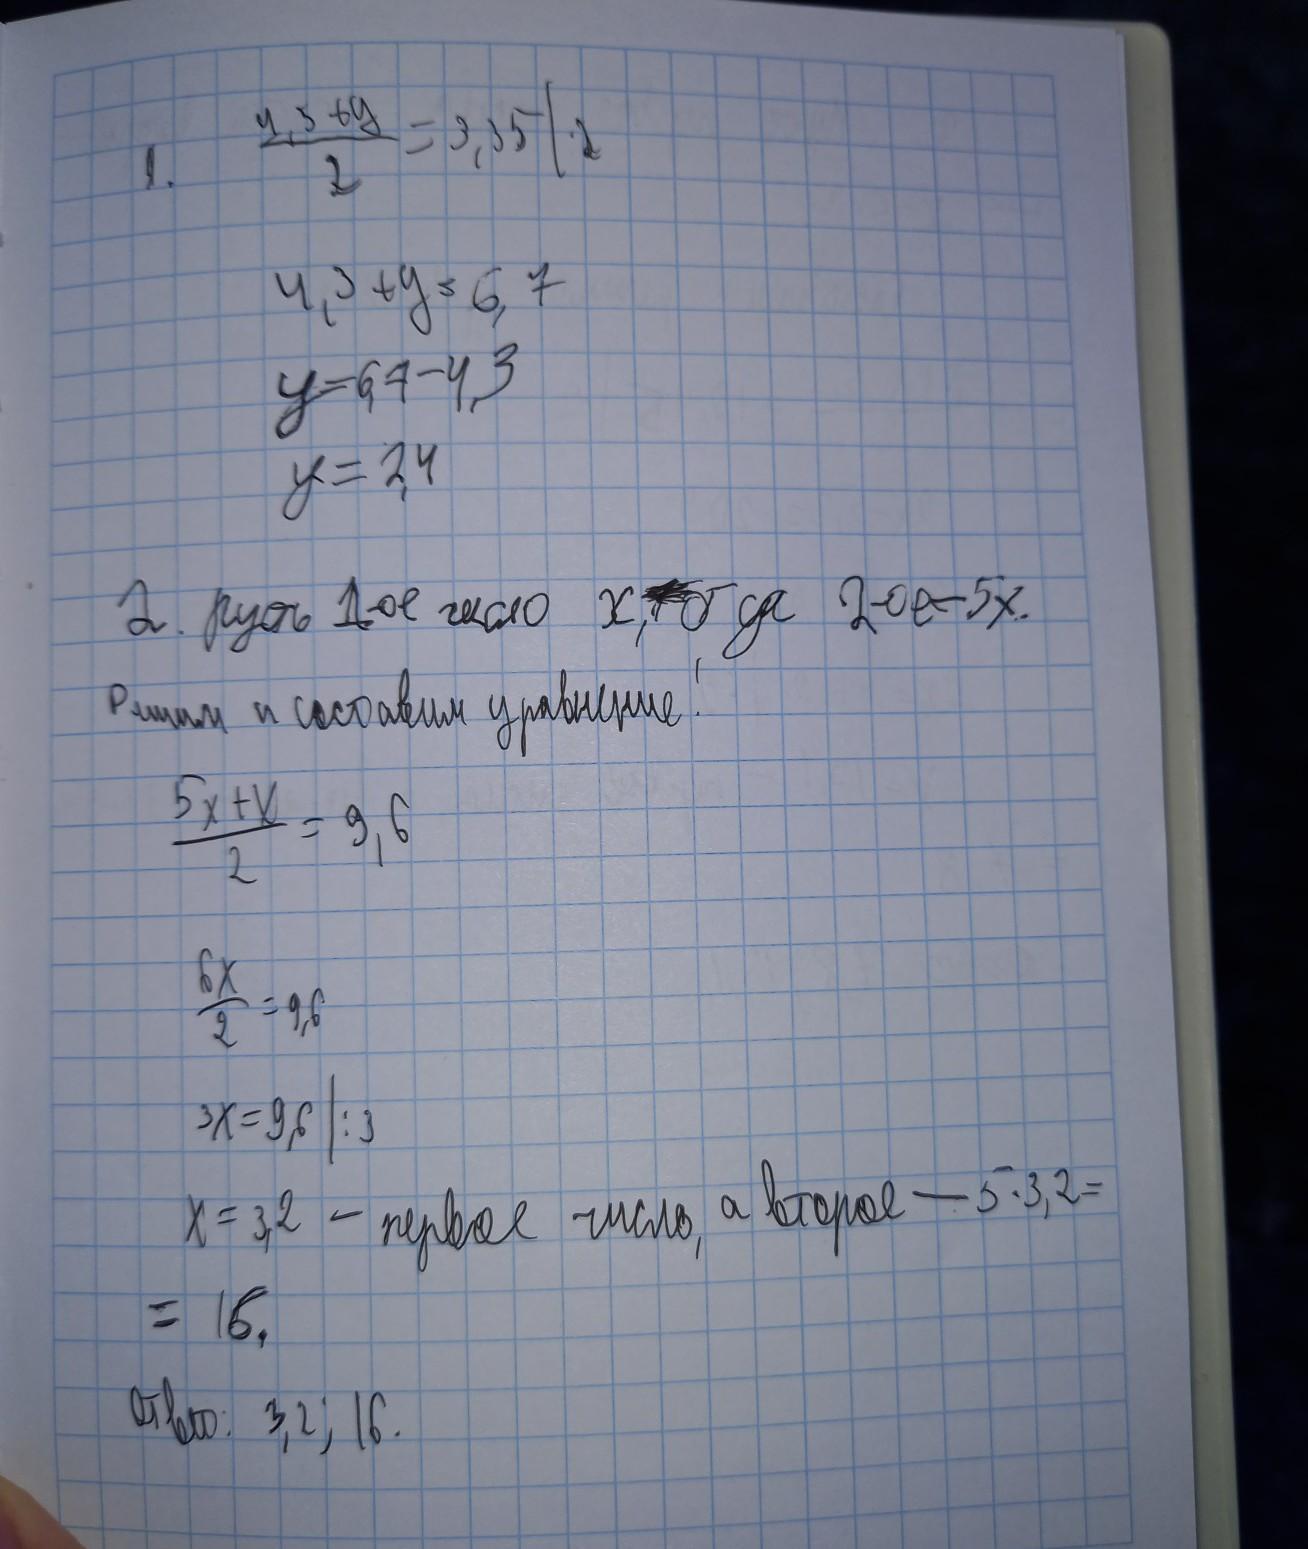 1. (4,3+y)/2 = 3,35 | ·2
4,3+y=6,7
y=6,7-4,3
y=2,4
2. Пусть 1-ое число x, тогда 2-ое-5x.
Решим и составим уравнение:
(5x+x)/2 = 9,6
6x/2 = 9,6
3x=9,6 | :3
x=3,2 – первое число, а второе — 5·3,2=
= 16.
Ответ: 3,2; 16.